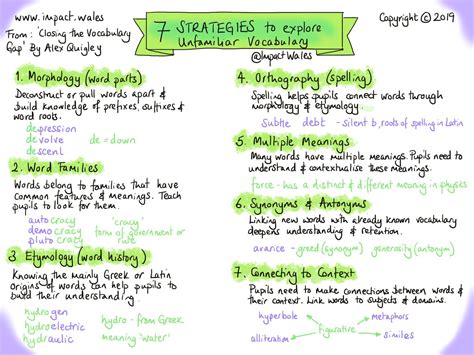 www.impact.wales
From: 'Closing the Vocabulary
Gap' By Alex Quigley
7 STRATEGIES to explore
Unfamiliar Vocabulary
@ImpactWales
Copyright © 2019
1. Morphology (word parts)
Deconstruct or pull words apart &
build knowledge of prefixes, suffixes &
word roots.
depression
devolve de = down
descent
2. Word Families
Words belong to families that have
common features & meanings. Teach
pupils to look for them.
autocracy 'cracy'
democracy form of government or
plutocracy rule
3 Etymology (word history)
Knowing the mainly Greek or Latin
origins of words can help pupils to
build their understanding
hydrogen hydro - from Greek
hydroelectric
hydraulic meaning 'water'
4. Orthography (spelling)
Spelling helps pupils connect words through
morphology & etymology.
Subtle debt - silent b, roots of spelling in Latin
5 Multiple Meanings
Many words have multiple meanings. Pupils need to
understand & contextualise these meanings.
force - has a distinct & different meaning in physics
6. Synonyms & Antonyms
Linking new words with already known vocabulary
deepens understanding & retention.
avarice - greed (synonym) generosity (antonym)
7. Connecting to Context
Pupils need to make connections between words &
their context. Link words to subjects & domains.
hyperbole metaphors
figurative
alliteration similes